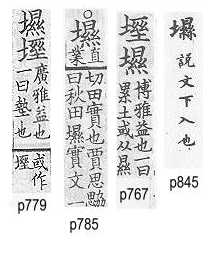 㙷
廣雅益也
一曰墊也
或作
p779
○㙷
直
業
切田實也賈思勰
曰秋田㙷實文一
p785
㙷
博雅益也一曰
累土或从㬎
p767
㙷說文下入也
p845